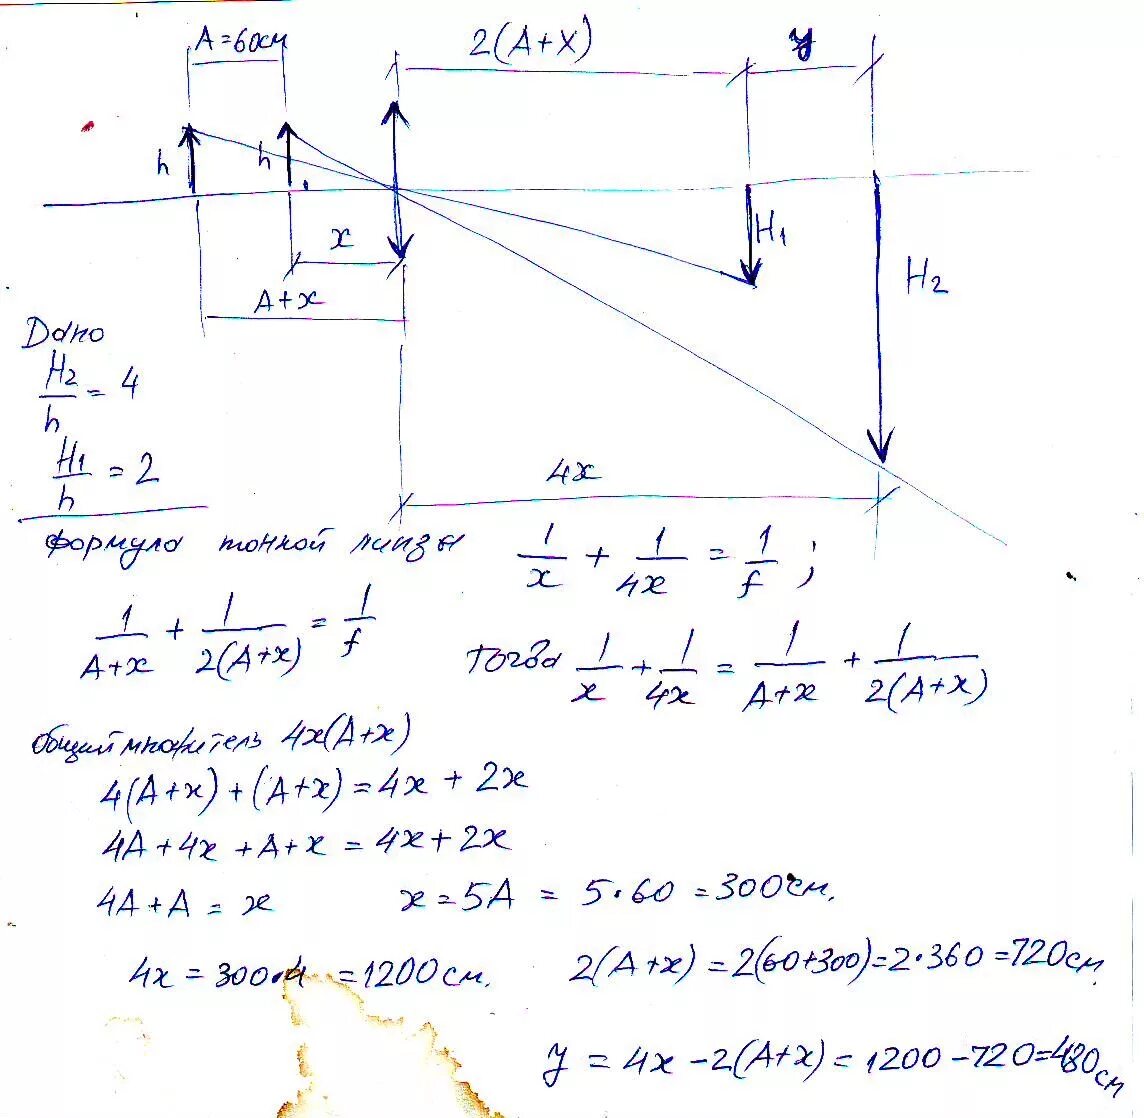 A=60см
2(A+x)
y
h
h
x
A+x
H₁
H₂
4x
Дано
H₂/h = 4
H₁/h = 2
формула тонкой линзы 1/x + 1/4x = 1/f ;
1/(A+x) + 1/2(A+x) = 1/f
тогда 1/x + 1/4x = 1/(A+x) + 1/2(A+x)
общий множитель 4x(A+x)
4(A+x)+(A+x)=4x+2x
4A+4x+A+x=4x+2x
4A+A=x x=5A=5·60=300см.
4x=300·4=1200см. 2(A+x)=2(60+300)=2·360=720см
y=4x-2(A+x)=1200-720=480см